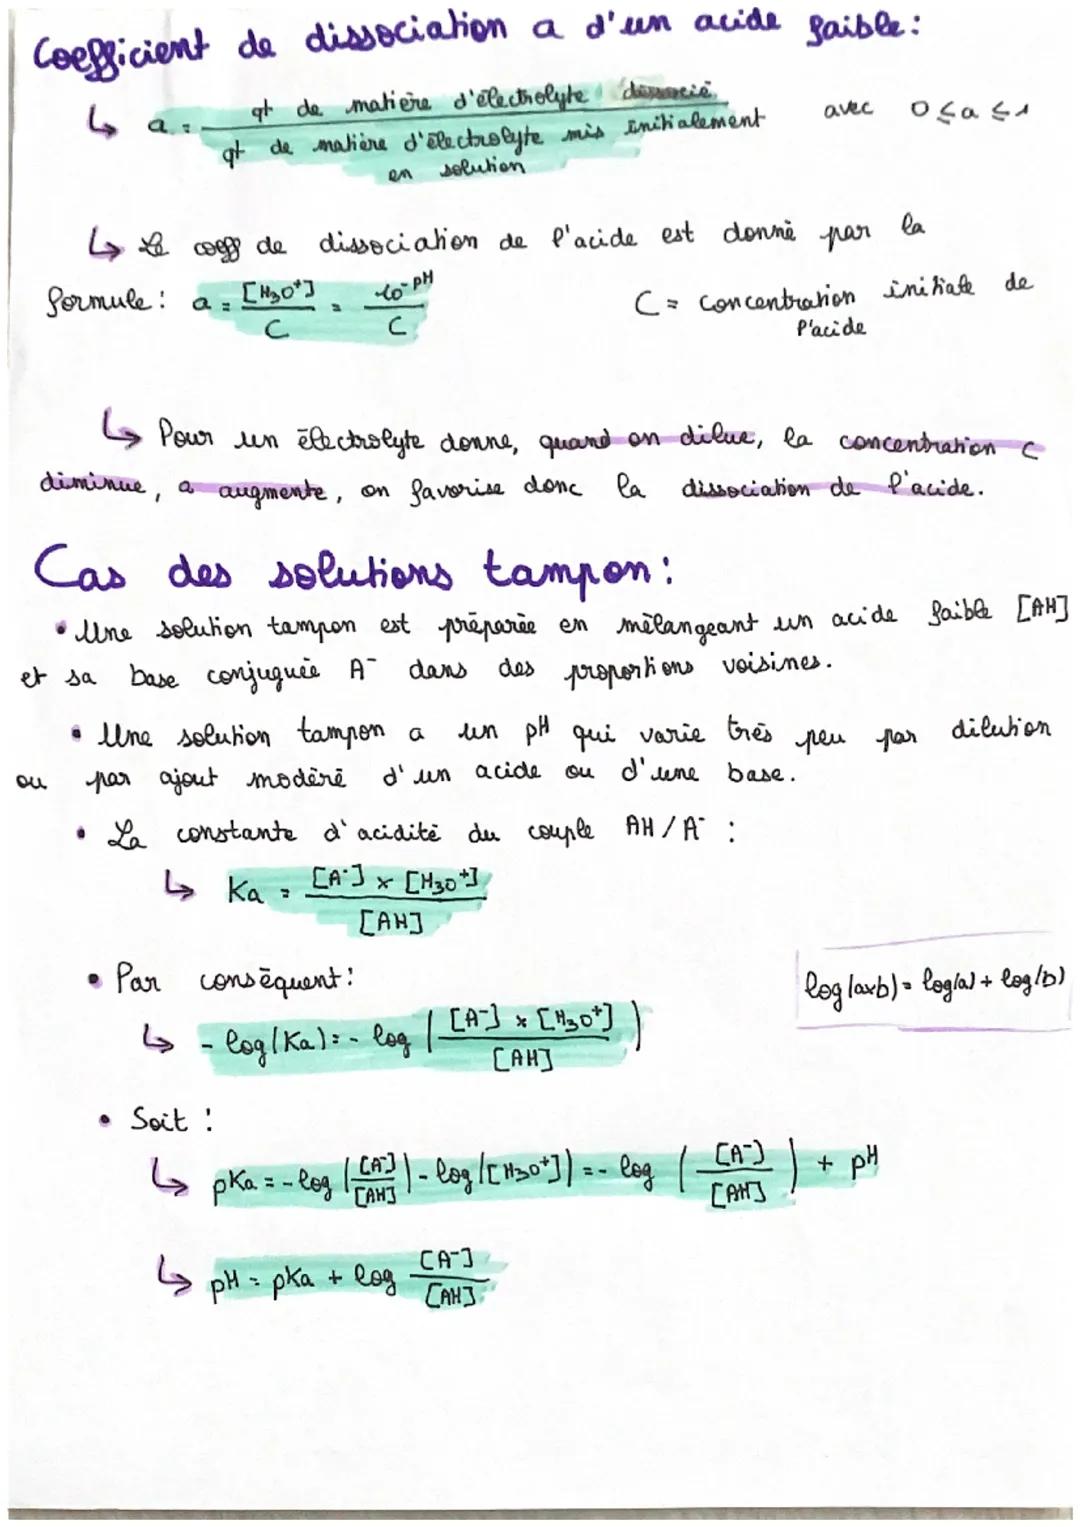 Coefficient de dissociation a d'un acide faible:
↳ a = qt de matière d'électrolyte dissocié / qt de matière d'électrolyte mis initialement en solution avec 0 ≤ a ≤ 1
↳ Le coeff de dissociation de l'acide est donné par la
formule: a = [H₃O⁺] / C = 10^-pH / C
C = concentration initiale de
l'acide
↳ Pour un électrolyte donne, quand on dilue, la concentration C
diminue, a augmente, on favorise donc la dissociation de l'acide.
Cas des solutions tampon:
• Une solution tampon est préparée en mélangeant un acide faible [AH]
et sa base conjuguée A⁻ dans des proportions voisines.
• Une solution tampon a un pH qui varie très peu par dilution
ou par ajout modéré d'un acide ou d'une base.
• La constante d'acidité du couple AH/A⁻ :
↳ Ka = [A⁻] × [H₃O⁺] / [AH]
• Par conséquent:
log(axb) = log(a) + log(b)
↳ - log(Ka) = - log ([A⁻] × [H₃O⁺] / [AH])
• Soit :
↳ pKa = - log ([A⁻] / [AH]) - log([H₃O⁺]) = - log ([A⁻] / [AH]) + pH
↳ pH = pKa + log [A⁻] / [AH]